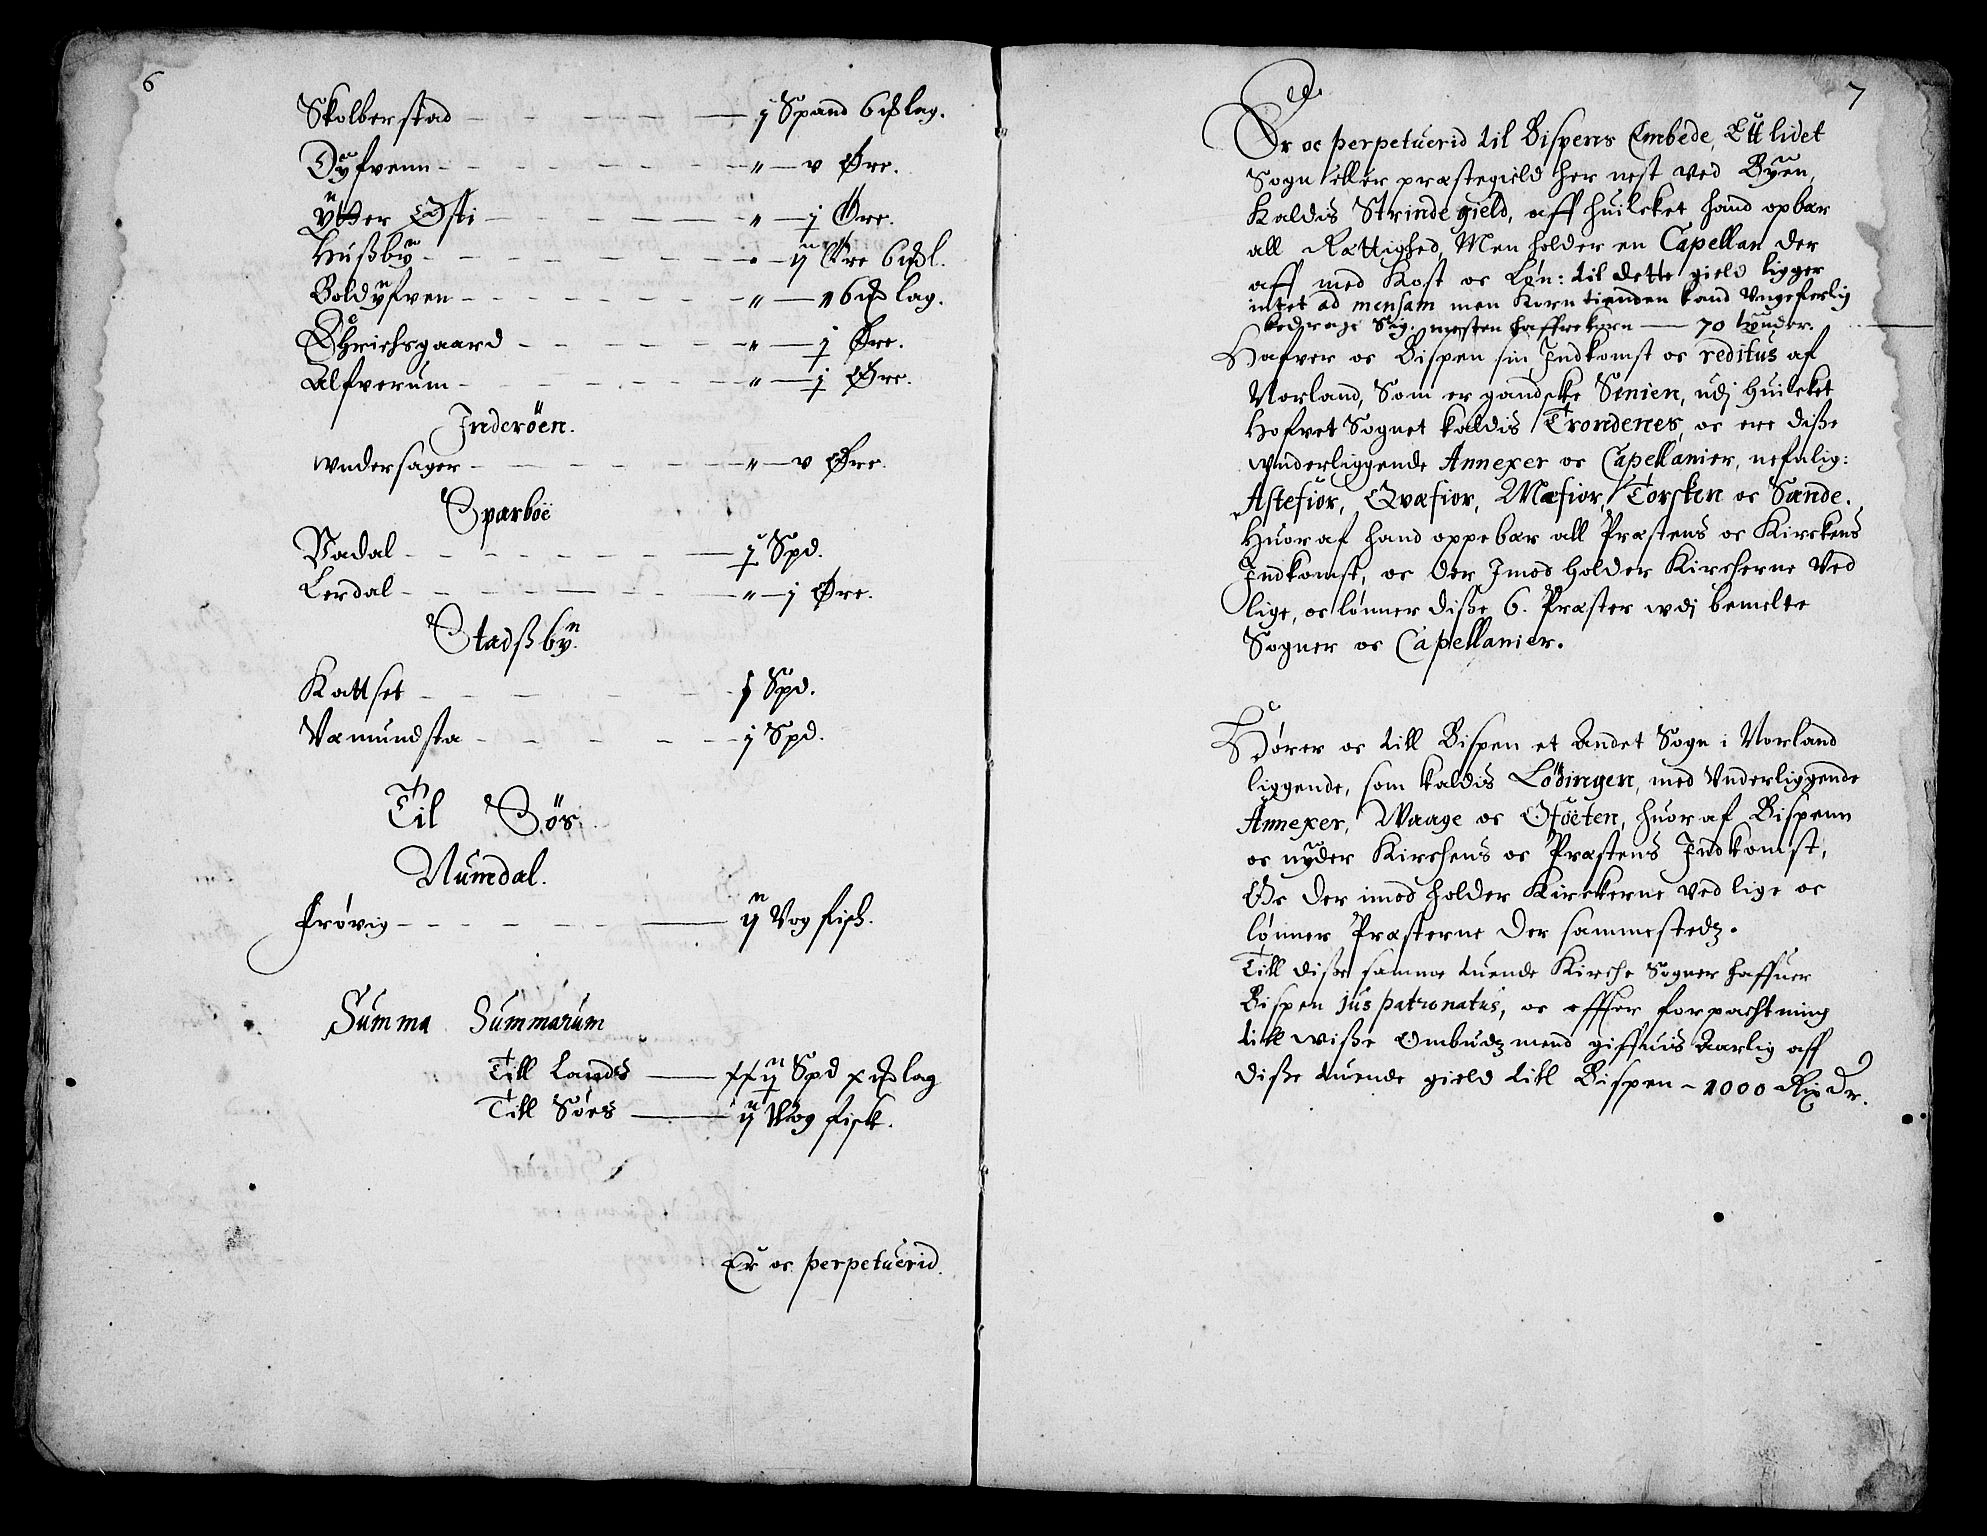 6
Skolberstad — j Spand 6 ß lag.
Dÿfvenn — „ — v Øre.
Ÿtter Østi — „ — j Øre.
Hußbÿ — „ — ij Øre 6 ß l.
Boldÿfven — „ — „ 6 ß lag.
Øhrichsgaard — „ — j Øre.
Alfverum — „ — j Øre.
Inderöen.
wndersager — „ — v Øre.
Sparboe
Vadal — j Spd.
Lerdal — „ — j Øre.
Stadßbÿ.
Kattset — j Spd.
Væmundsta — j Spd.
Til Sös
Numdal.
Frøvig — ij Vog fisk.
Summa Summarum
Till Lands — xxij Spd x ß lag
Till Søes — ij Vog fisk.
Er oc perpetuerid.
7
Er oc perpetuerid til Bispens Embede, Ett lidet
Sogn eller præstegield her nest ved Byen,
Kaldis Strinde gield, aff huilcket hand opbær
all Rættighed, Men holder en Capellan der
aff med Kost oc Løn: til dette gield ligger
intet ad mensam men Korn tienden kand Vngeferlig
bedrage Sig. mesten haffrekorn — 70 tynder.
Hafver oc Bispen sin Indkomst oc reditus af
Norland, Som er gandske Senien, udj huilcket
Hofvet Sognet kaldis Trondenes, oc ere disse
wnderliggende Annexer oc Capellanier, nefnlig:
Astefior, Qvæfior, Mæfior, Torsken oc Sande.
Huoraf hand oppebær all Præstens oc Kirckens
Indkomst, oc der Imod holder Kircherne Ved
lige, oc lønner disse 6. Præster wdj bemelte
Sogner oc Capellanier.
Hører oc till Bispen et Andet Sogn i Norland
liggende, som kaldis Lödingen, med Vnderliggende
Annexer, Waage oc Ofoeten, huoraf Bispenn
oc nyder Kirchens oc Præstens Indkomst,
Oc der imod holder Kirckerne ved lige oc
lønner Præsterne der sammestedz.
Till disse samme tuende Kirche Sogner haffuer
Bispen jus patronatus, oc effter forpachtning
till wisse Ombudzmend giffuis Aarlig aff
disse tuende gield till Bispen – 1000 Rix Dr.